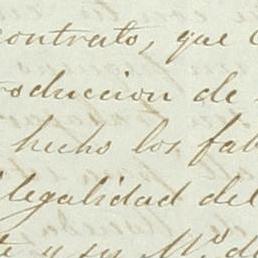 contrato, que
roduccion de
hecho los fab
ilegalidad del
te y su M.º de